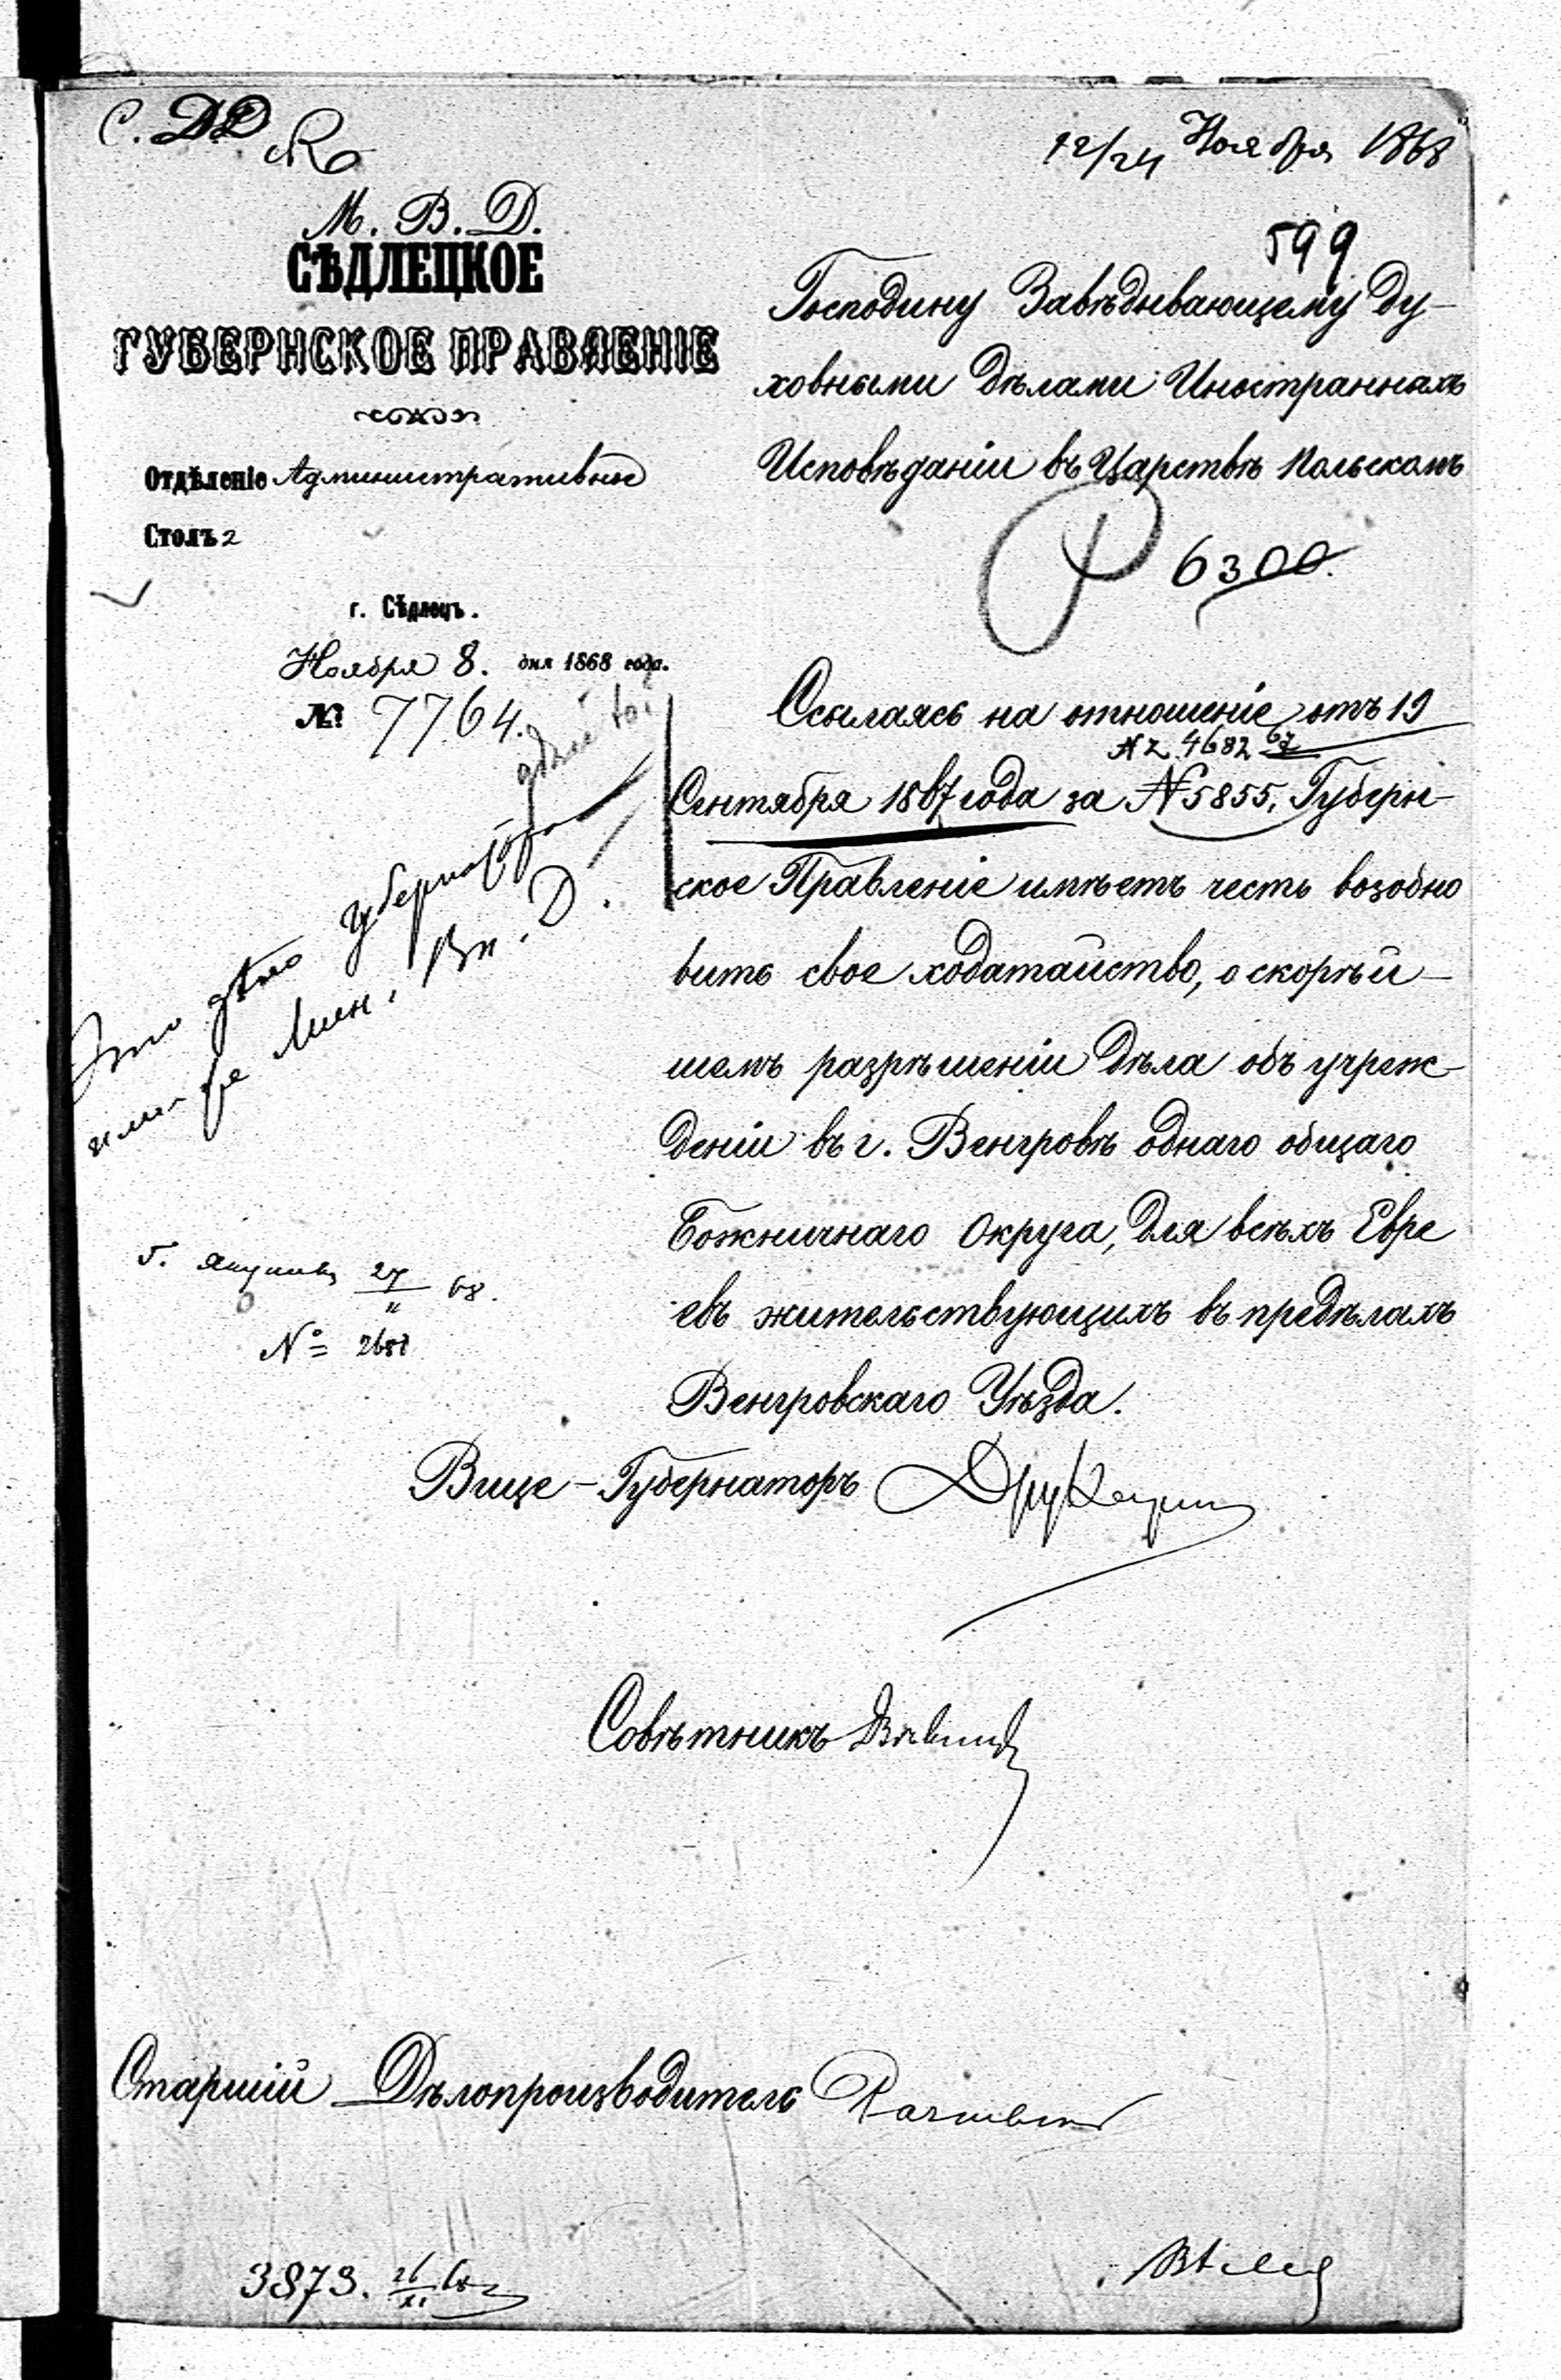 С. ДД
12/24 Ноября 1868
М. В. Д.
СѢДЛЕЦКОЕ
ГУБЕРНСКОЕ ПРАВЛЕНІЕ
Отдѣленіе Административное
Столъ 2
г. Сѣдлецъ.
Ноября 8. дня 1868 года.
№ 7764.
599
Господину Завѣдывающему Ду-
ховными дѣлами Иностранныхъ
Исповѣданіи въ Царствѣ Польскомъ
6300.
Ссылаясь на отношеніе отъ 19
№ 4682 67
Сентября 1867 года за № 5855, Губерн-
ское Правленіе имѣетъ честь возобно
вить свое ходатайство, о скорѣй-
шемъ разрѣшеніи дѣла объ учреж-
деніи въ г. Венгровѣ однаго общаго
Божничнаго Округа, для всѣхъ Евре
евъ жительствующихъ въ предѣлахъ
Венгровскаго Уѣзда.
Это дѣло губернатора
или же Мин. Вн. Д.
27/11 68.
№ 268
Вице-Губернаторъ
Совѣтникъ
Старшій Дѣлопроизводитель
3873. 26/XI 68